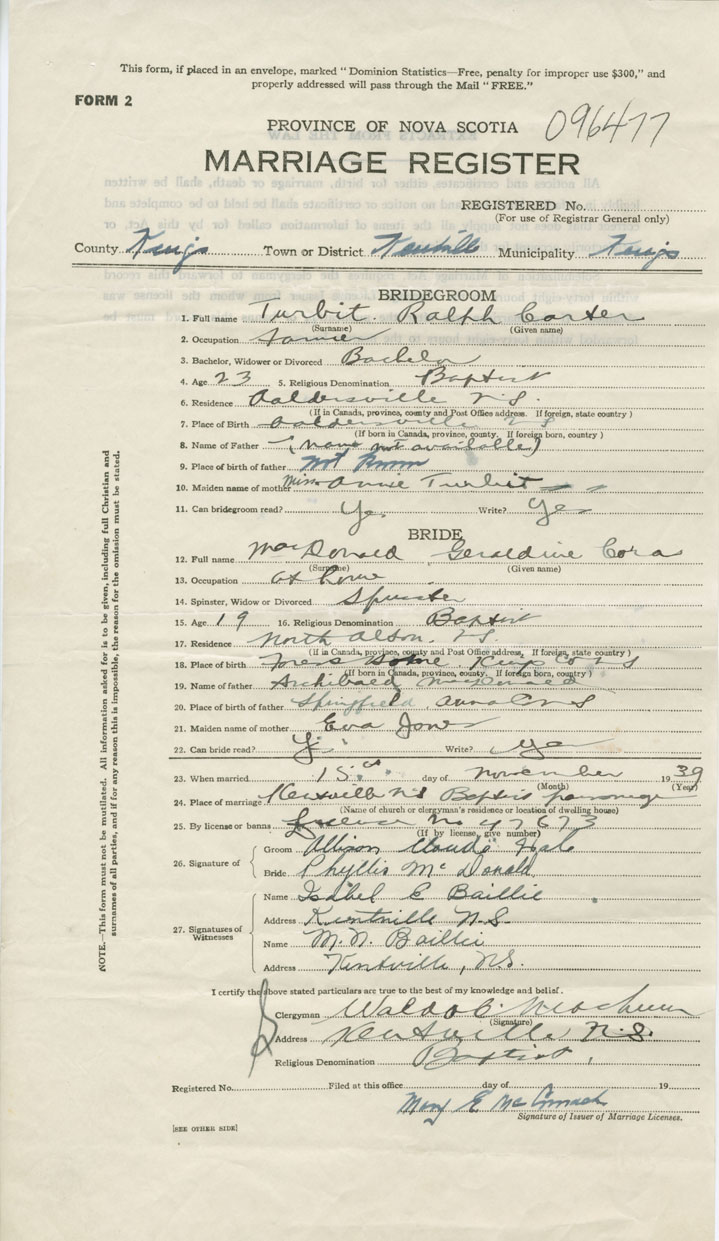 This form, if placed in an envelope, marked "Dominion Statistics—Free, penalty for improper use $300," and
properly addressed will pass through the Mail "FREE."
FORM 2
096477
PROVINCE OF NOVA SCOTIA
MARRIAGE REGISTER
REGISTERED No.
(For use of Registrar General only)
County Kings Town or District Kentville Municipality Kings
BRIDEGROOM
1. Full name Turbit. Ralph Carter
(Surname) (Given name)
2. Occupation Farmer
3. Bachelor, Widower or Divorced Bachelor
4. Age 23 5. Religious Denomination Baptist
6. Residence Aaldersville N.S.
(If in Canada, province, county and Post Office address. If foreign, state country)
7. Place of Birth Aaldersville N S
(If born in Canada, province, county. If foreign born, country)
8. Name of Father (name not available)
9. Place of birth of father not known
10. Maiden name of mother Miss Annie Turbit
11. Can bridegroom read? Yes Write? Yes
BRIDE
12. Full name MacDonald Geraldine Cora
(Surname) (Given name)
13. Occupation at home
14. Spinster, Widow or Divorced Spinster
15. Age 19 16. Religious Denomination Baptist
17. Residence North Alton. N.S.
(If in Canada, province, county and Post Office address, If foreign, state country)
18. Place of birth Kings Co N S
(If born in Canada, province, county, If foreign born, country)
19. Name of father Archibald MacDonald
20. Place of birth of father Springfield Anna Co N S
21. Maiden name of mother Eva Jones
22. Can bride read? Yes Write? Yes
23. When married 15th day of November 1939
(Month) (Year)
24. Place of marriage Kentville N S Baptist parsonage
(Name of church or clergyman's residence or location of dwelling house)
25. By license or banns License No 47673
(If by license, give number)
26. Signature of
Groom Allison Claude Hale
Bride Phyllis McDonald
27. Signatures of Witnesses
Name Isabel E Baillie
Address Kentville N.S.
Name M. N. Baillie
Address Kentville, N.S.
I certify the above stated particulars are true to the best of my knowledge and belief.
Clergyman Waldo C.
(Signature)
Address Kentville N.S.
Religious Denomination Baptist.
Registered No. Filed at this office day of 19
Mary E McCormack
Signature of Issuer of Marriage Licenses.
[SEE OTHER SIDE]
NOTE.—This form must not be mutilated. All information asked for is to be given, including full Christian and
surnames of all parties, and if for any reason this is impossible, the reason for the omission must be stated.